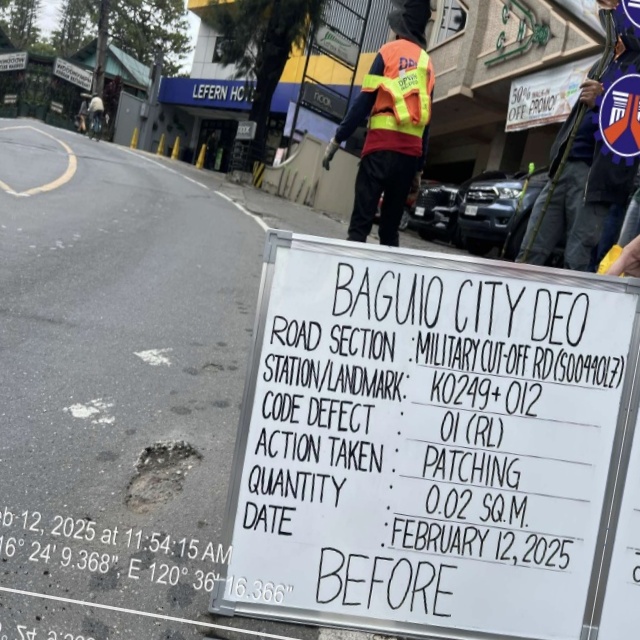 LEFERN HOTEL
50%
OFF PROMO!
BAGUIO CITY DEO
ROAD SECTION : MILITARY CUT-OFF RD (S00440LZ)
STATION/LANDMARK: K0249+012
CODE DEFECT : 01 (RL)
ACTION TAKEN : PATCHING
QUANTITY : 0.02 SQ.M.
DATE : FEBRUARY 12, 2025
BEFORE
eb 12, 2025 at 11:54:15 AM
16° 24' 9.368", E 120° 36' 16.366"